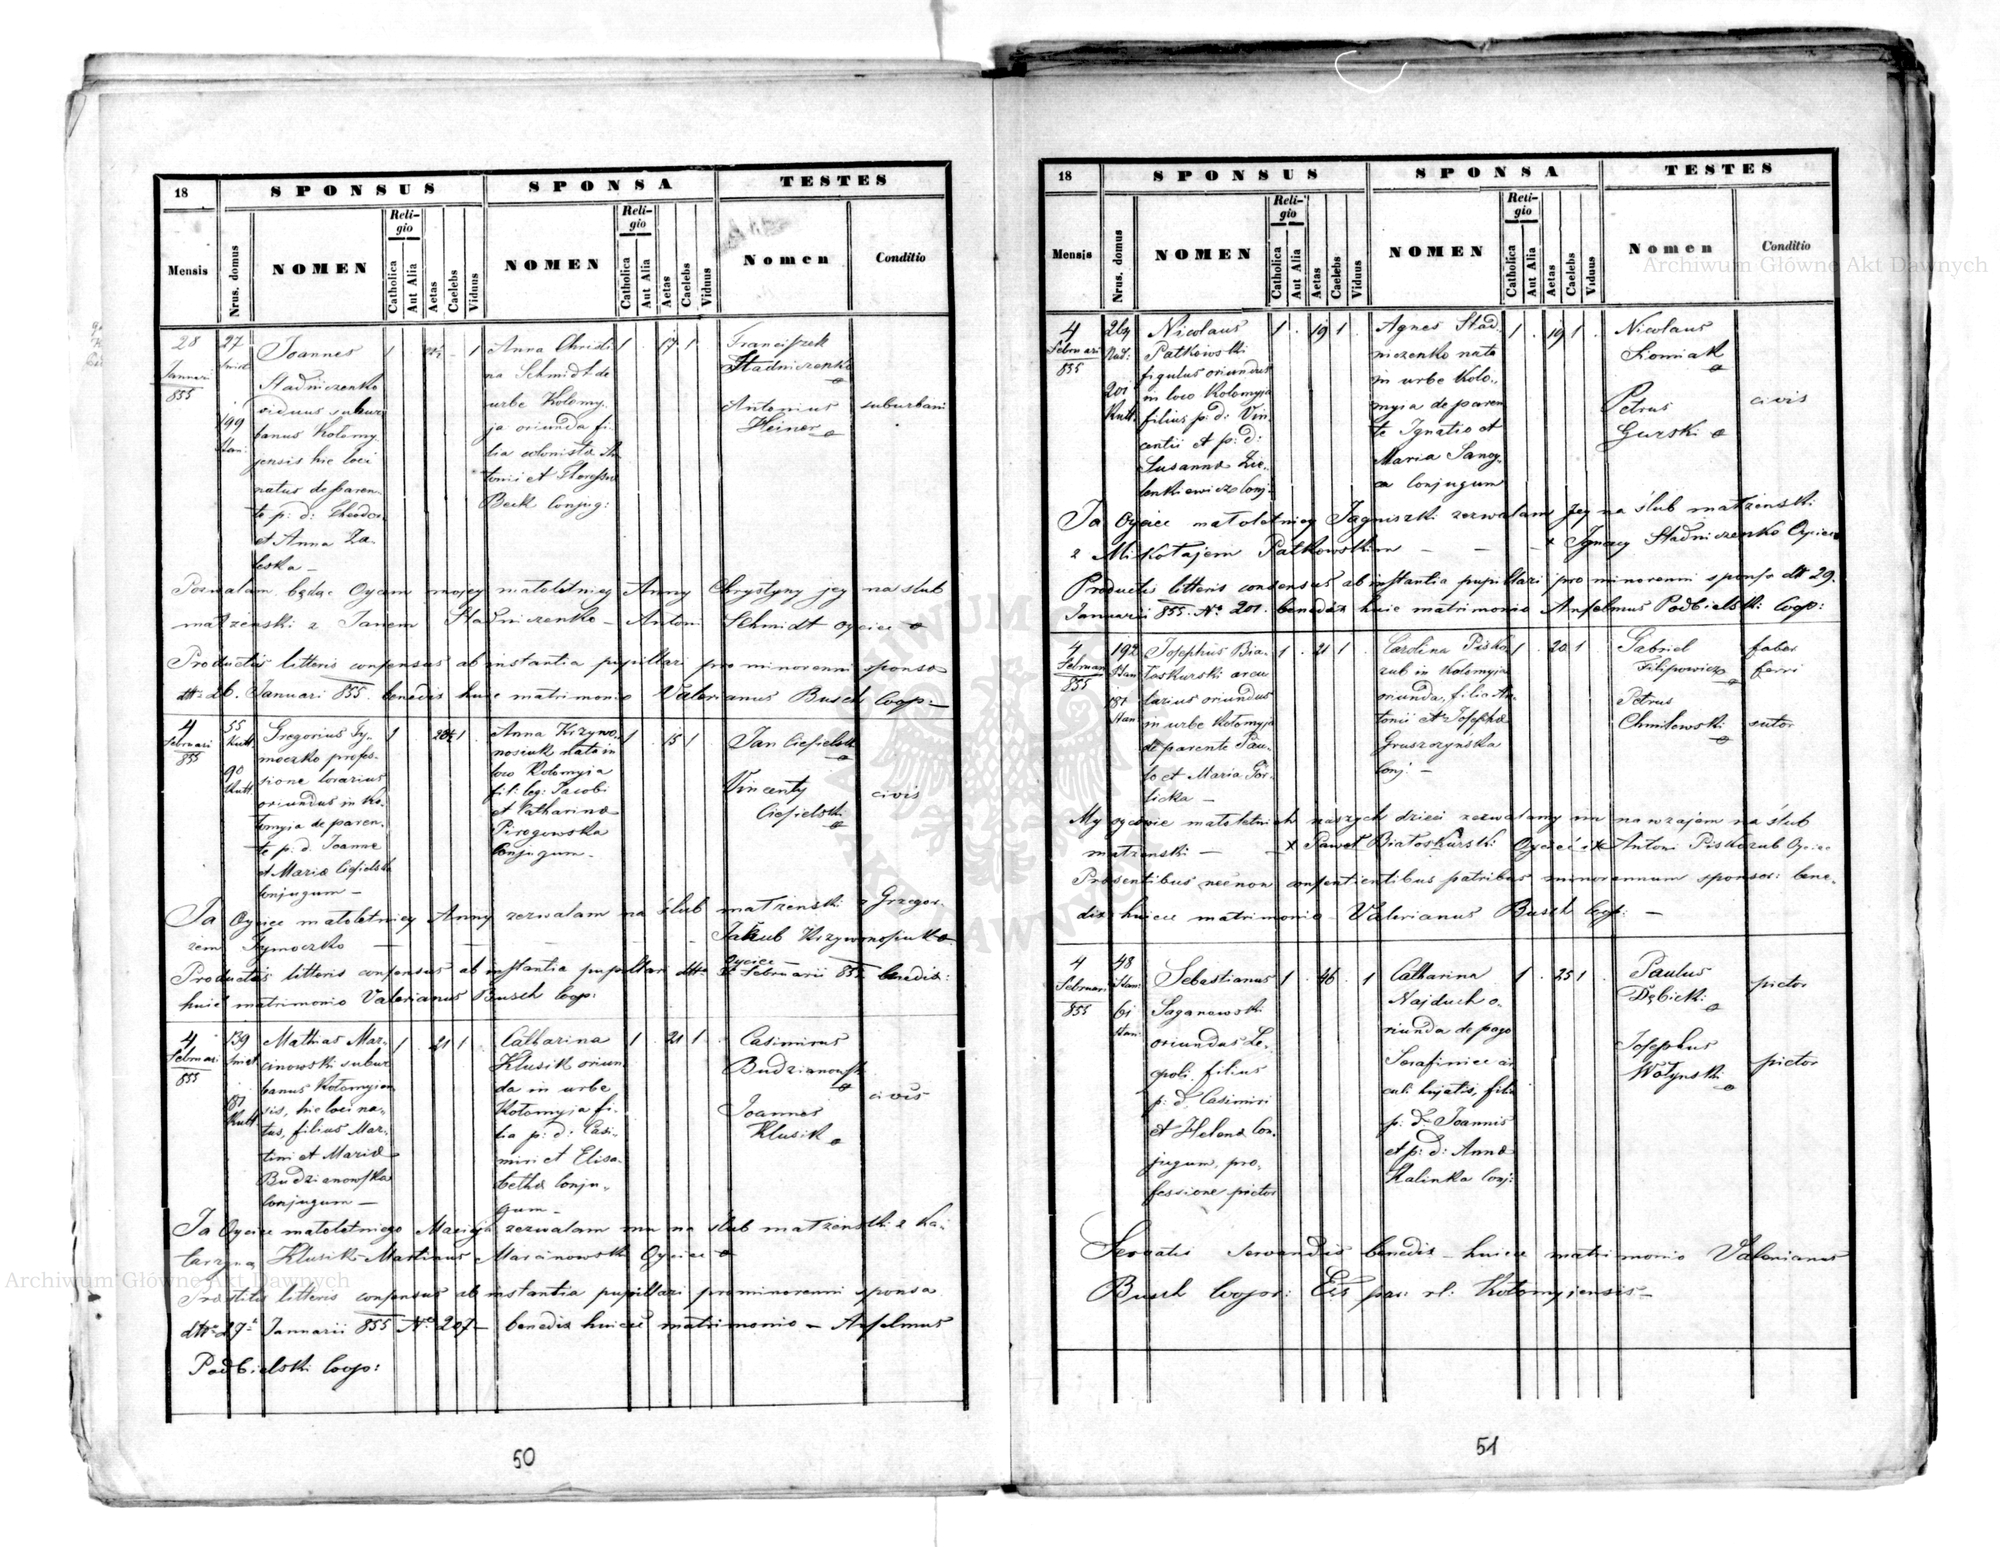 18
SPONSUS
SPONSA
TESTES
Mensis
Nrus. domus
NOMEN
Religio
Catholica
Aut Alia
Aetas
Caelebs
Viduus
NOMEN
Religio
Catholica
Aut Alia
Aetas
Caelebs
Viduus
Nomen
Conditio
28
Januari
855
27
199
Joannes
Stadniczenko
viduus subur
banus Kołomy
jensis hic loci
natus de paren
te p: d: Theodor
et Anna Za
leska –
1
1
Anna Christi
na Schmidt de
urbe Kolomy
ja oriunda fi
lia colonista An
tonii et Theressa
Beck Conjug:
1
17
1
Franciszek
Stadniczenko
Antonius
Heiner
suburbani
Pozwalam będąc Oycem mojey małoletniey Anny Chrystyny jey na slub
małżenski z Janem Stadniczenko – Antoni Schmidt oyciec
Productis litteris consensus ab instantia pupillari pro minorenni sponsa
dtto 26. Januari 855. benedix huic matrimonio Valerianus Busch Coop:
4
Februari
855
55
Kutt
90
Kutt
Gregorius Ty
moczko profes
sione lorarius
oriundus in Ko
łomyia de paren
te p: d: Joanne
et Maria Ciesielska
Conjugum –
1
1
Anna Krzywo
nosiuk nata in
loco Kołomyia
fil: leg: Jacobi
et Catharina
Pirogowska
Conjugum –
1
15
1
Jan Ciesielski
Vincenty
Ciesielski
civis
Ja Oyciec małoletniey Anny zezwalam na ślub małżenski z Grzegor
zem Tymoczko – – – – Jakub Krzywonosiuk
Oyciec –
Productis litteris consensus ab instantia pupillari dtto Februarii 855 benedix:
huic matrimonio Valerianus Busch Coop:
4
Februari
855
139
87
Kutt
Mathias Mar
cinowski subur
banus Kołomyien
sis, hic loci na
tus, filius Mar
tini et Maria
Budzianowska
Conjugum –
1
21
1
Catharina
Klusik oriun
da in urbe
Kołomyja fi
lia p: d: Casi
miri et Elisa
betha Conju
gum –
1
21
1
Casimirus
Budzianowski
Joannes
Klusik
civis
Ja Oyciec małoletniego Macieja zezwalam mu na ślub małżenski z Ka
tarzyną Klusik – Martinus Marcinowski Oyciec
Prostitis litteris consensus ab instantia pupillari pro minorenni sponsa
dtto 27 Januarii 855 No 207 – benedix huice matrimonio – Anselmus
Podbielski Coop:
50
18
SPONSUS
SPONSA
TESTES
Mensis
Nrus. domus
NOMEN
Religio
Catholica
Aut Alia
Aetas
Caelebs
Viduus
NOMEN
Religio
Catholica
Aut Alia
Aetas
Caelebs
Viduus
Nomen
Conditio
4
Februari
855
Nad:
201
Kutt
Nicolaus
Patkowski
figulus oriundus
in loco Kołomyja
filius p: d: Vin
centii et p: d:
Susanna Zie
lenkiewicz Conj
1
19
1
Agnes Stad
niczenko nata
in urbe Koło
myia de paren
te Ignatio et
Maria Sanoy
ca Conjugum
1
19
1
Nicolaus
Łomiak
Petrus
Gurski
civis
Ja Oyciec małoletniey Jagniszki zezwalam Jey na ślub małżenski
z Mikołajem Patkowskim – – – x Ignacy Stadniczenko Oyciec
Productis litteris consensus ab instantia pupillari pro minorenni sponso dtt 29.
Januarii 855. No 201. benedix huic matrimonio Anselmus Podbielski Coop:
4
Februari
855
192
181
Stan
Josephus Bia
łoskurski arcu
larius oriundus
in urbe Kołomyja
de parente Pau
lo et Maria Gór
licka –
1
21
1
Carolina Pisko
zub in Kołomyja
oriunda, filia An
tonii et Josepha
Gruszczyńska
Conj –
1
20
1
Gabriel
Filipowicz
Petrus
Chmilewski
faber
ferri
sutor
My oycowie małoletnich naszych dzieci zezwalamy im nawzajem na ślub
małżenski – x Paweł Białoskurski Oyciec i x Antoni Piskozub Oyciec
Presentibus necnon consentientibus patribus minorennum sponsor: bene
dix huice matrimonio – Valerianus Busch Coop: –
4
Februari
855
48
Stan:
61
Stan:
Sebastianus
Saganowski
oriundus Le
opoli filius
p: d. Casimiri
et Helena Con
jugum, pro
fessione pictor
1
46
1
Catharina
Najduch o
riunda de pago
Serafince cir
culi hujatis, filia
p: d: Joannis
et p: d: Anna
Kalinka Conj:
1
25
1
Paulus
Dębicki
Josephus
Wołynski
pictor
pictor
Servatis servandis benedix huice matrimonio Valerianus
Busch Coopr: Ecs par: rl: Kołomyiensis –
51
Archiwum Główne Akt Dawnych
Archiwum Główne Akt Dawnych
ARCHIWUM GŁÓWNE AKT DAWNYCH